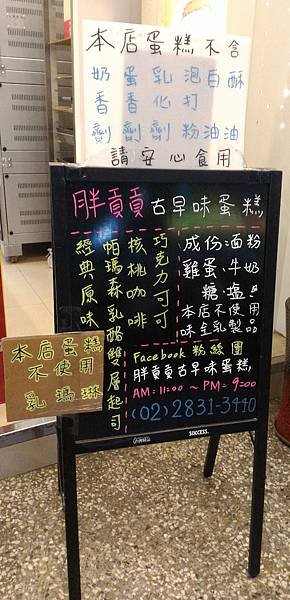 本店蛋糕不含
奶香劑
蛋香劑
乳化劑
泡打粉
白油
酥油
請安心食用
胖貢貢古早味蛋糕
巧克力可可
核桃咖啡
帕瑪森乳酪雙層起司
經典原味
成份:面粉
雞蛋、牛奶
糖、塩!!
本店不使用
味全乳製品
Facebook 粉絲團
胖貢貢古早味蛋糕
AM:11:00 ~ PM:9:00
(02)2831-3440
SUCCESS.
本店蛋糕
不使用
乳瑪琳